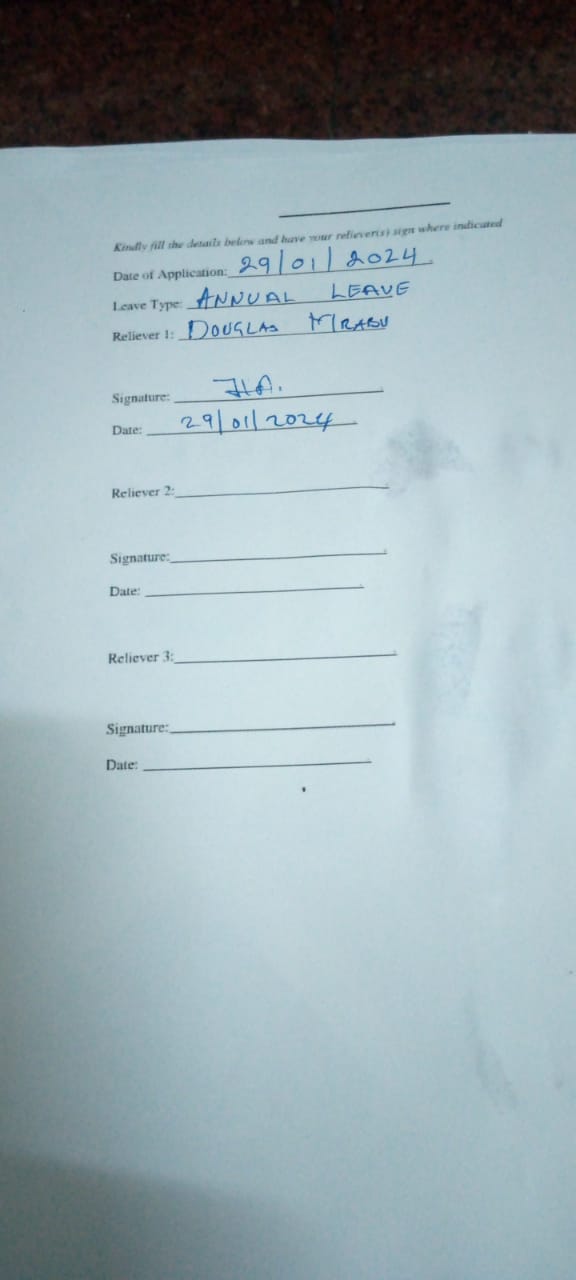 Kindly fill the details below and have your reliever(s) sign where indicated
Date of Application: 29/01/2024
Leave Type: ANNUAL LEAVE
Reliever 1: DOUGLAS
Signature:
Date: 29/01/2024
Reliever 2:
Signature:
Date:
Reliever 3:
Signature:
Date: